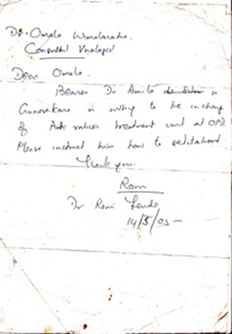 Dr. Omala Wimalaratne
Consultant Virologist
Dear Omala.
Bearer Dr Amila
Gunesekara is willing to be in charge
of Anti rabies treatment unit at OPD
Please instruct him how to
Thank you.
Rami
Dr Rami
14/5/05 -